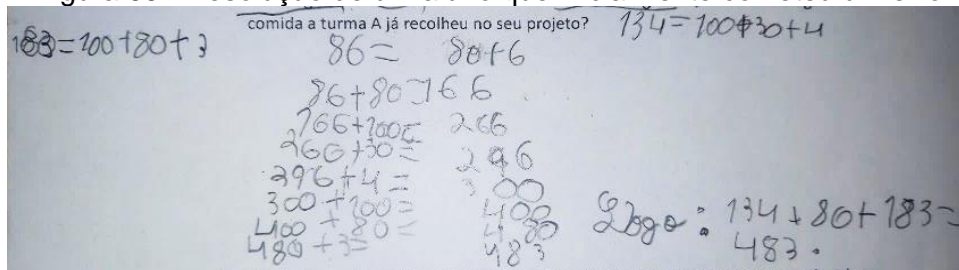 comida a turma A já recolheu no seu projeto?
134=100+30+4
183=100+80+3
86= 80+6
86+80=166
166+100= 266
266+30= 296
296+4= 300
300+100= 400
400+80= 480
480+3= 483
Logo: 134+80+183=
483.